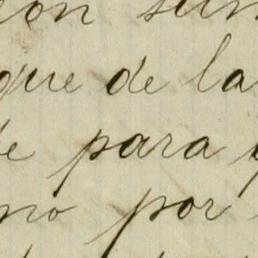 con sun
que de la
de para
no por